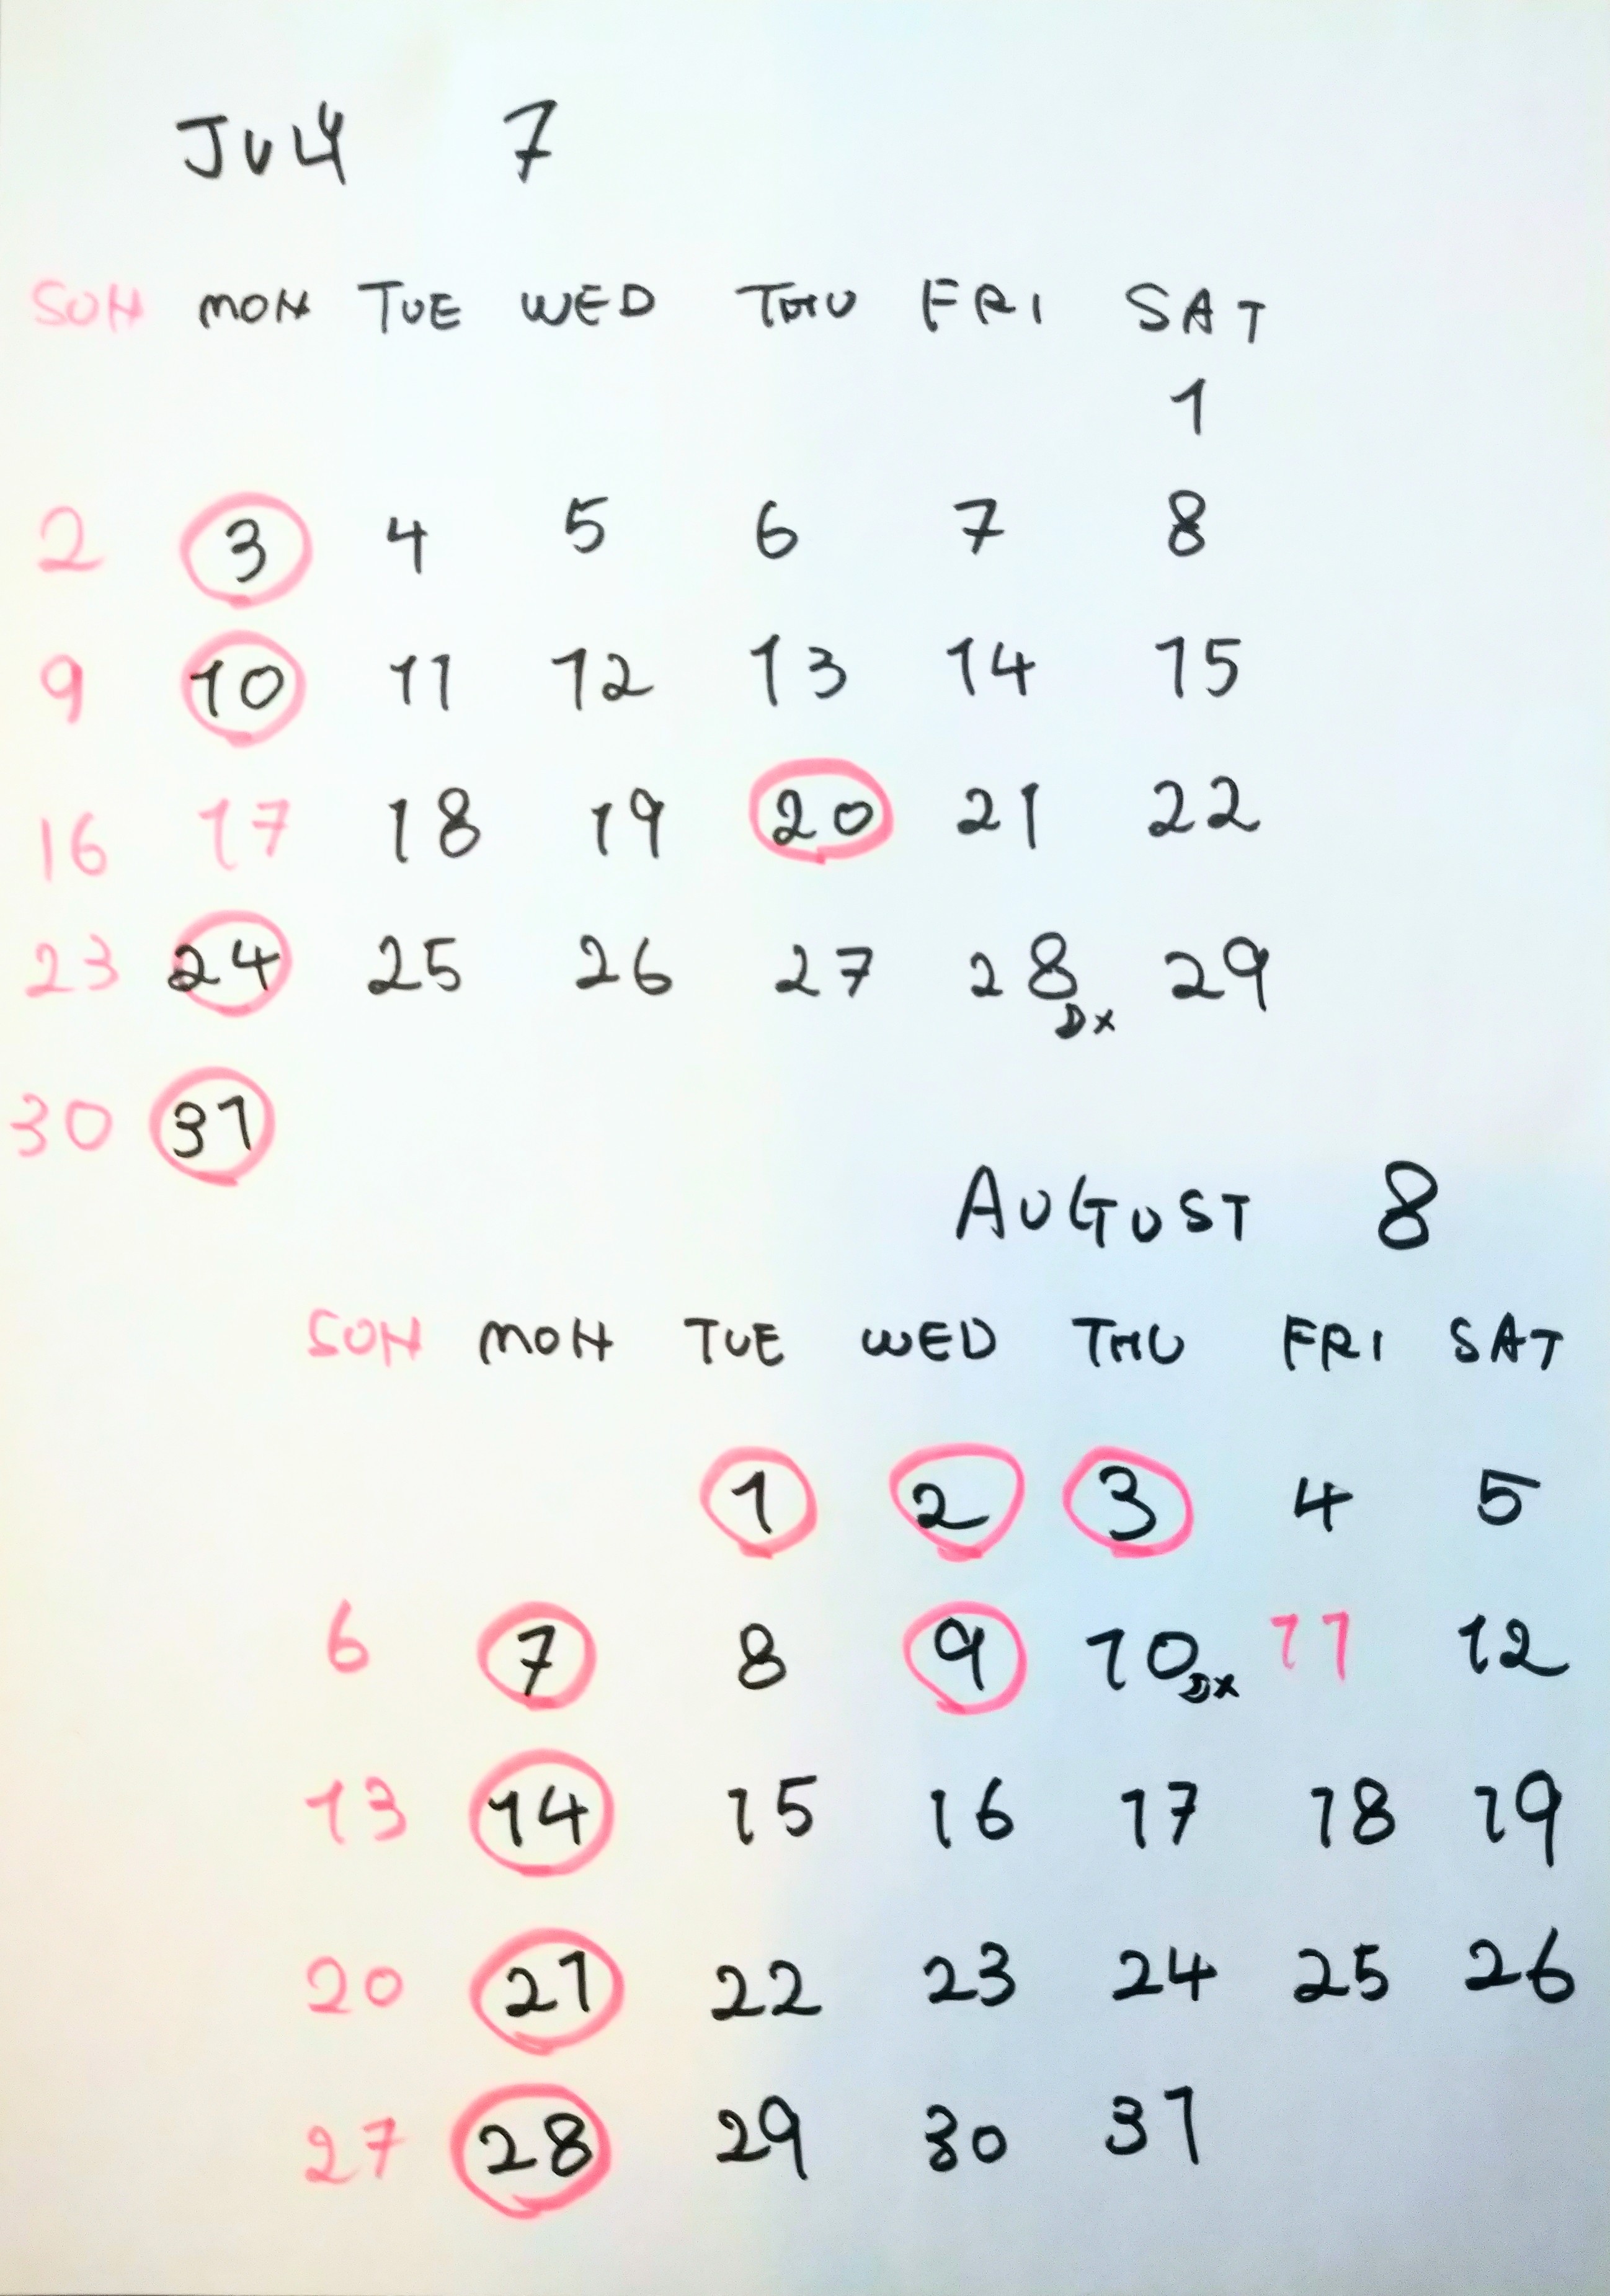 JULY 7
SUN MON TUE WED THU FRI SAT
1
2 3 4 5 6 7 8
9 10 11 12 13 14 15
16 17 18 19 20 21 22
23 24 25 26 27 28 29
Dx
30 31
AUGUST 8
SUN MON TUE WED THU FRI SAT
1 2 3 4 5
6 7 8 9 10 Dx 11 12
13 14 15 16 17 18 19
20 21 22 23 24 25 26
27 28 29 30 31